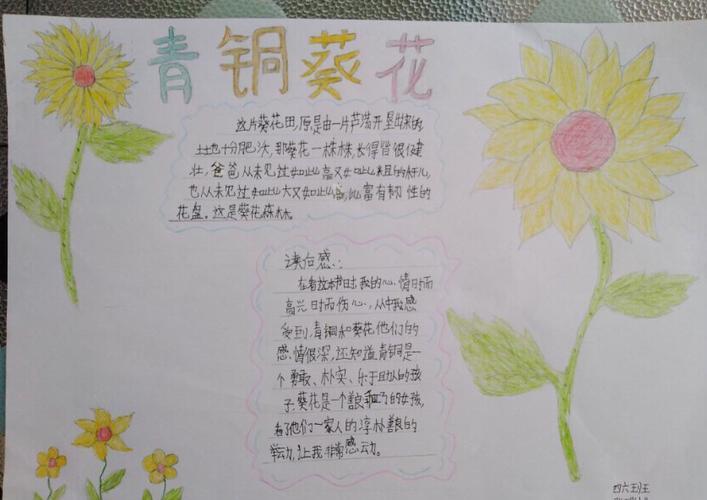 青铜葵花
这片葵花田,原是由一片芦荡开垦出来的,
土地十分肥沃,那葵花一株株,长得皆很健
壮,爸爸从未见过如此高又如此粗的杆儿,
也从未见过如此大又如此富有韧性的
花盘。这是葵花森林。
读后感:
在看这本书时,我的心情时而
高兴时而伤心,从中我感
受到,青铜和葵花他们的
感情很深,还知道青铜是一
个勇敢、朴实、乐于助人的孩
子,葵花是一个善良乖巧的女孩,
看了他们一家人的淳朴善良的
举动,让我非常感动。
四六班王